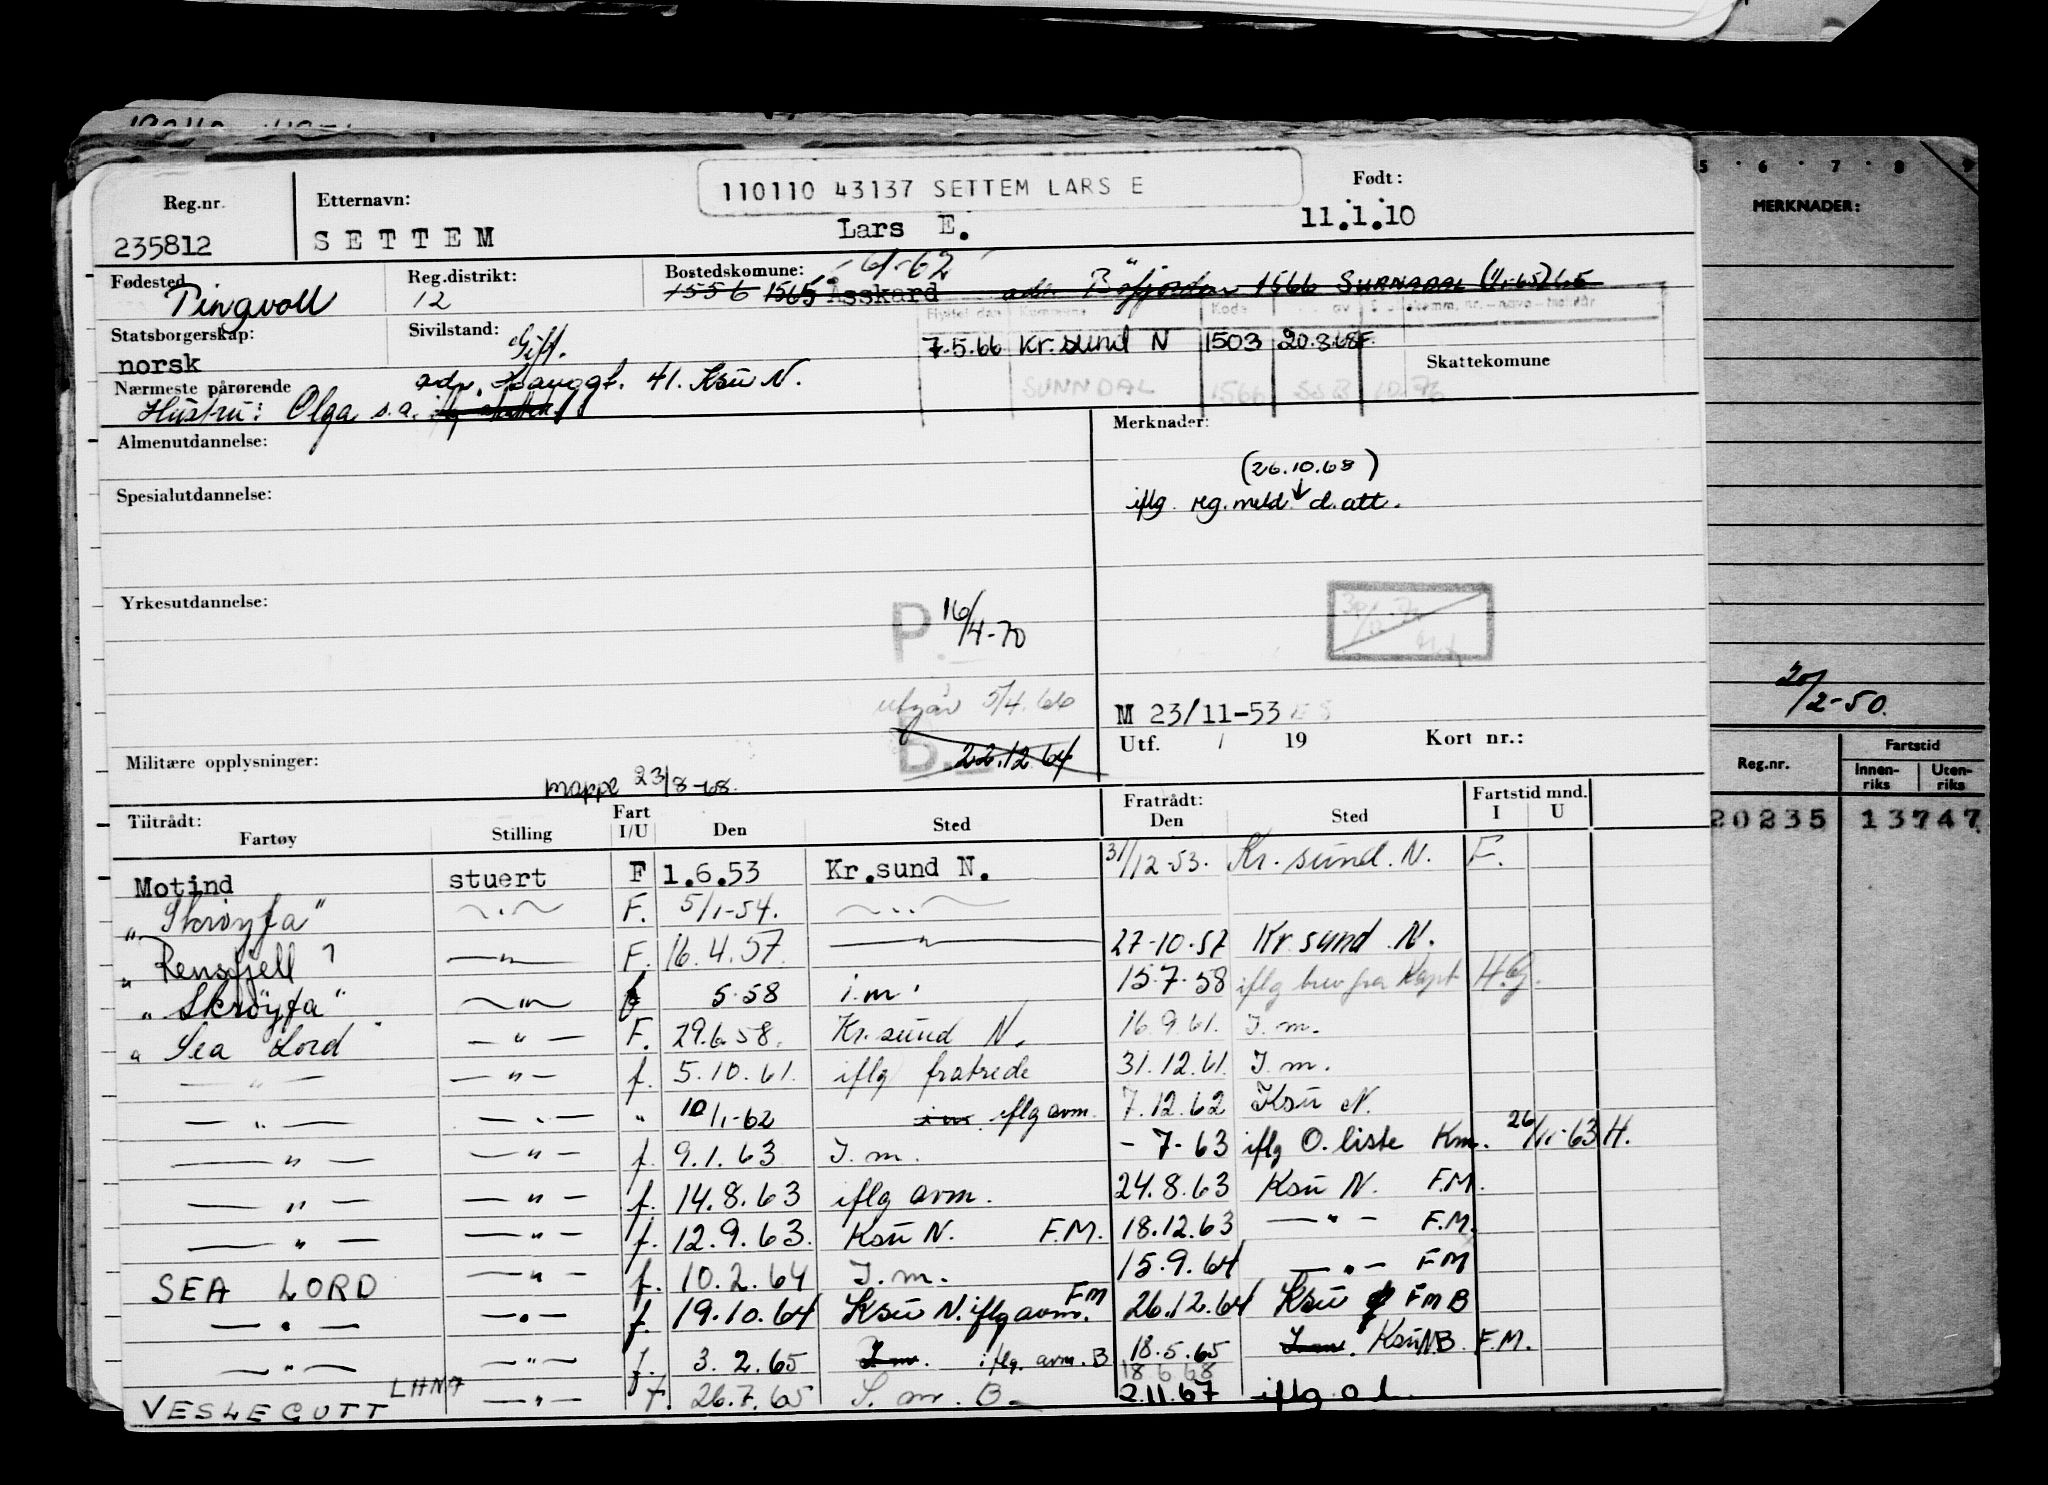 110110 43137 SETTEM LARS E
Reg.nr. Etternavn: Født:
235812 SETTEM Lars E. 11.1.10
Fødested Reg.distrikt: Bostedskomune: -6/-62
Tingvoll 12 1556 1565 Åsskard adr. Böfjorden 1566 SURNADAL (1/1-65) 6.5
Statsborgerskap: Sivilstand:
norsk Gift. 7.5.66 Kr.sund N 1503 20.8.68 F.
Skattekomune
Nærmeste pårørende adr. 41. Ksu N.
SUNNDAL 1566
Hustru: Olga s.a.
Almenutdannelse: Merknader:
(26.10.68)
Spesialutdannelse: iflg. reg.meld. d.att.
Yrkesutdannelse: P. 16/4-70
utgår 5/4.66
M 23/11-53
B. 22.12.64 Utf. / 19 Kort nr.:
Militære opplysninger:
mappe 23/8-68.
Tiltrådt: Fart Fratrådt: Fartstid mnd.
Fartøy Stilling I/U Den Sted Den Sted I U
Motind stuert F 1.6.53 Kr.sund N. 31/12-53. Kr.sund. N. F.
" Skrøyfa" — " — F. 5/1-54. — " —
" Rensfjell ? — " — F. 16.4.57. — " — 27-10-57 Kr.sund N.
" Skrøyfa" — " — f 5.58 i.m. 15.7.58 iflg brev fra Kapt H.G.
" Sea Lord" — " — F. 29.6.58. Kr.sund N. 16.9.61. I.m.
— " — — " — f. 5.10.61. iflg fratrede 31.12.61. I.m.
— " — — " — " 10/1-62 i.m. iflg avm. 7.12.62 Ksu N.
— " — — " — f. 9.1.63 I.m. -7-63 iflg O.liste Km. 26/11-63 H.
— " — — " — f. 14.8.63 iflg avm. 24.8.63 Ksu N. F.M.
— " — — " — f. 12.9.63. Ksu N. F.M. 18.12.63 — " — F.M.
SEA LORD — " — f. 10.2.64 I.m. 15.9.64 — " — FM
— " — — " — f. 19.10.64 Ksu N. iflg avm. FM 26.12.64 Ksu FM B
— " — — " — f. 3.2.65 I.m. iflg. avm. B 18.5.65 I.m. Ksu N B. F.M.
18.6.68
VESLEGUTT LHNA — " — F. 26.7.65 I.m. B. 2.11.67 iflg o.l.
5 6 7 8 9
MERKNADER:
20/2-50.
Fartstid
Reg.nr. Innen-riks Uten-riks
20235 13747